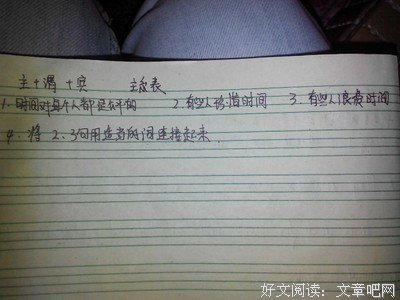 主+谓+宾 主系表
1.时间对每个人都是公平的 2.有些人珍惜时间 3.有些人浪费时间
4.将2、3句用适当的词连接起来.
好文阅读:文章吧网